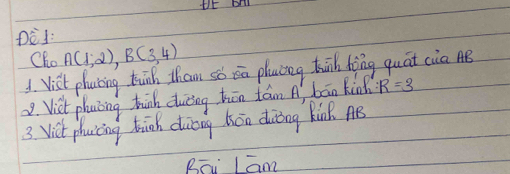 ĐỀ BÀI
Đề 1:
Cho A(1;2), B(3,4)
1. Viết phương trình tham số và phương trình tổng quát của AB
2. Viết phương trình đường tròn tâm A, bán kính: R = 3
3. Viết phương trình đường tròn đường kính AB
Bài Làm